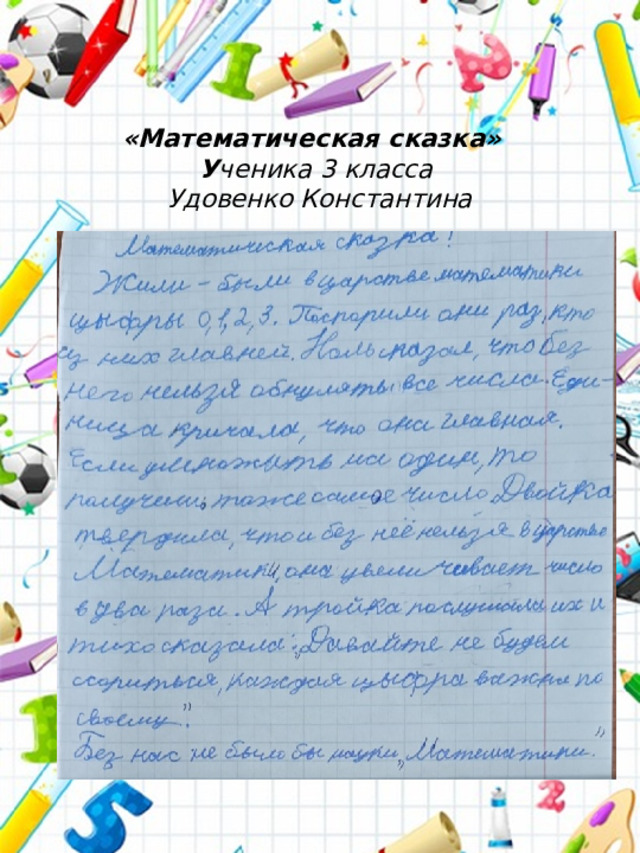 «Математическая сказка»
Ученика 3 класса
Удовенко Константина
Математическая сказка!
Жили - были в царстве математики
цыфры 0, 1, 2, 3. Поспорили они раз, кто
из них главней. Ноль сказал, что без
него нельзя обнулять все числа. Еди-
ница кричала, что она главная.
Если умножыть на один, то
получем тоже самое число. Двойка
твердила, что и без неё нельзя в царстве
Математики, она увеличивает число
в два раза. А тройка послушала их и
тихо сказала: „Давайте не будем
ссориться, каждая цыфра важна по
своему".
Без нас не было бы науки „Математики."